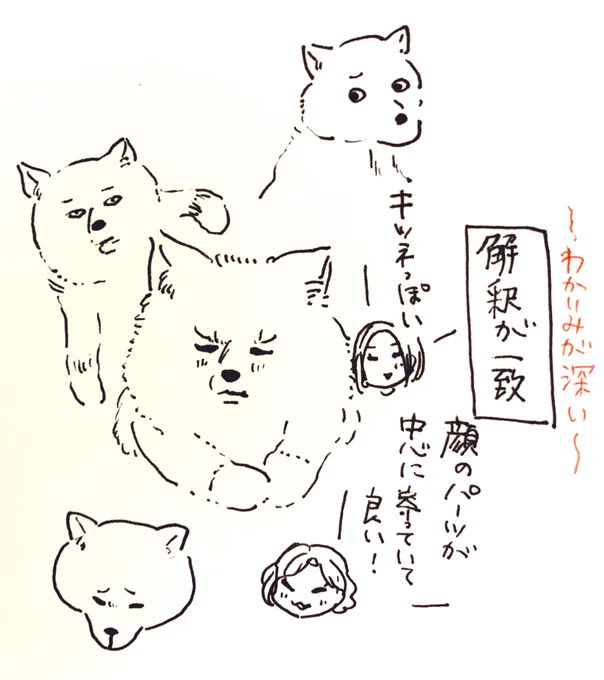 〜わかりみが深い〜
解釈が一致
キツネっぽい
顔のパーツが
中心に寄っていて
良い！